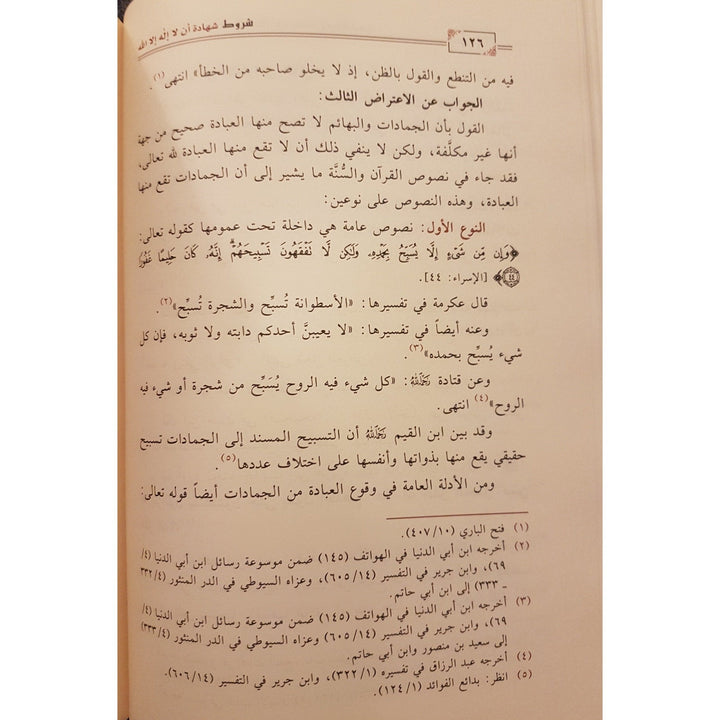 شروط شهادة أن لا إله إلا الله
١٢٦
فيه من التنطع والقول بالظن، إذ لا يخلو صاحبه من الخطأ» انتهى(١).
الجواب عن الاعتراض الثالث:
القول بأن الجمادات والبهائم لا تصح منها العبادة صحيح من جهة
أنها غير مكلَّفة، ولكن لا ينفي ذلك أن لا تقع منها العبادة لله تعالى،
فقد جاء في نصوص القرآن والسُّنَّة ما يشير إلى أن الجمادات تقع منها
العبادة، وهذه النصوص على نوعين:
النوع الأول: نصوص عامة هي داخلة تحت عمومها كقوله تعالى:
﴿وَإِن مِّن شَيْءٍ إِلَّا يُسَبِّحُ بِحَمْدِهِۦ وَلَٰكِن لَّا تَفْقَهُونَ تَسْبِيحَهُمْ ۗ إِنَّهُۥ كَانَ حَلِيمًا غَفُورًا
﴿٤٤﴾ [الإسراء: ٤٤].
قال عكرمة في تفسيرها: «الأسطوانة تُسبِّح والشجرة تُسبِّح»(٢).
وعنه أيضاً في تفسيرها: «لا يعيبنَّ أحدكم دابته ولا ثوبه، فإن كل
شيء يُسبِّح بحمده»(٣).
وعن قتادة رَحِمَهُ اللَّهُ: «كل شيء فيه الروح يُسَبِّح من شجرة أو شيء فيه
الروح»(٤) انتهى.
وقد بين ابن القيم رَحِمَهُ اللَّهُ أن التسبيح المسند إلى الجمادات تسبيح
حقيقي يقع منها بذواتها وأنفسها على اختلاف عددها(٥).
ومن الأدلة العامة في وقوع العبادة من الجمادات أيضاً قوله تعالى:
(١) فتح الباري (٤٠٧/١٠).
(٢) أخرجه ابن أبي الدنيا في الهواتف (١٤٥) ضمن موسوعة رسائل ابن أبي الدنيا (٤/
٦٩)، وابن جرير في التفسير (٦٠٥/١٤)، وعزاه السيوطي في الدر المنثور (٣٣٢/٤
ـ ٣٣٣) إلى ابن أبي حاتم.
(٣) أخرجه ابن أبي الدنيا في الهواتف (١٤٥) ضمن موسوعة رسائل ابن أبي الدنيا (٤/
٦٩)، وابن جرير في التفسير (٦٠٥/١٤) وعزاه السيوطي في الدر المنثور (٣٣٣/٤)
إلى سعيد بن منصور وابن أبي حاتم.
(٤) أخرجه عبد الرزاق في تفسيره (٣٢٢/١)، وابن جرير في التفسير (٦٠٦/١٤).
(٥) انظر: بدائع الفوائد (١٢٤/١).